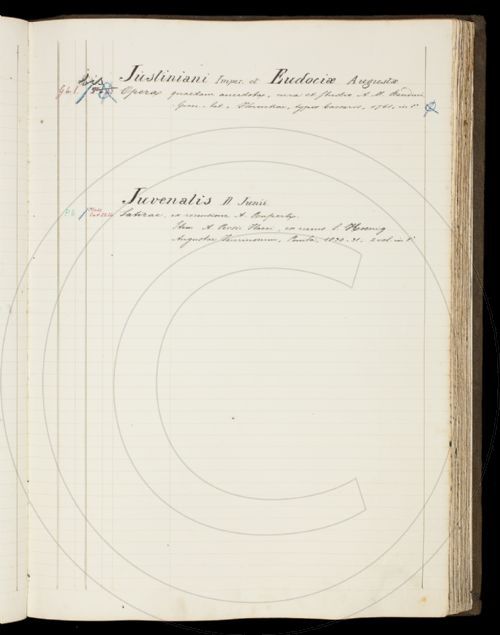 bis
Justiniani Imper. et Eudociæ Augustæ
Opera quaedam anecdota, cura et studio A. M. Bandini
Graec. lat. Florentiae, typis Caesareis, 1761, in 8°
Juvenalis D. Junii
Satirae, ex recensione A.
Item A. Persii Flacci, ex recens. C. Koenig
Augustae Taurinorum, Pomba, 1830-31, 2 vol. in 8°
C